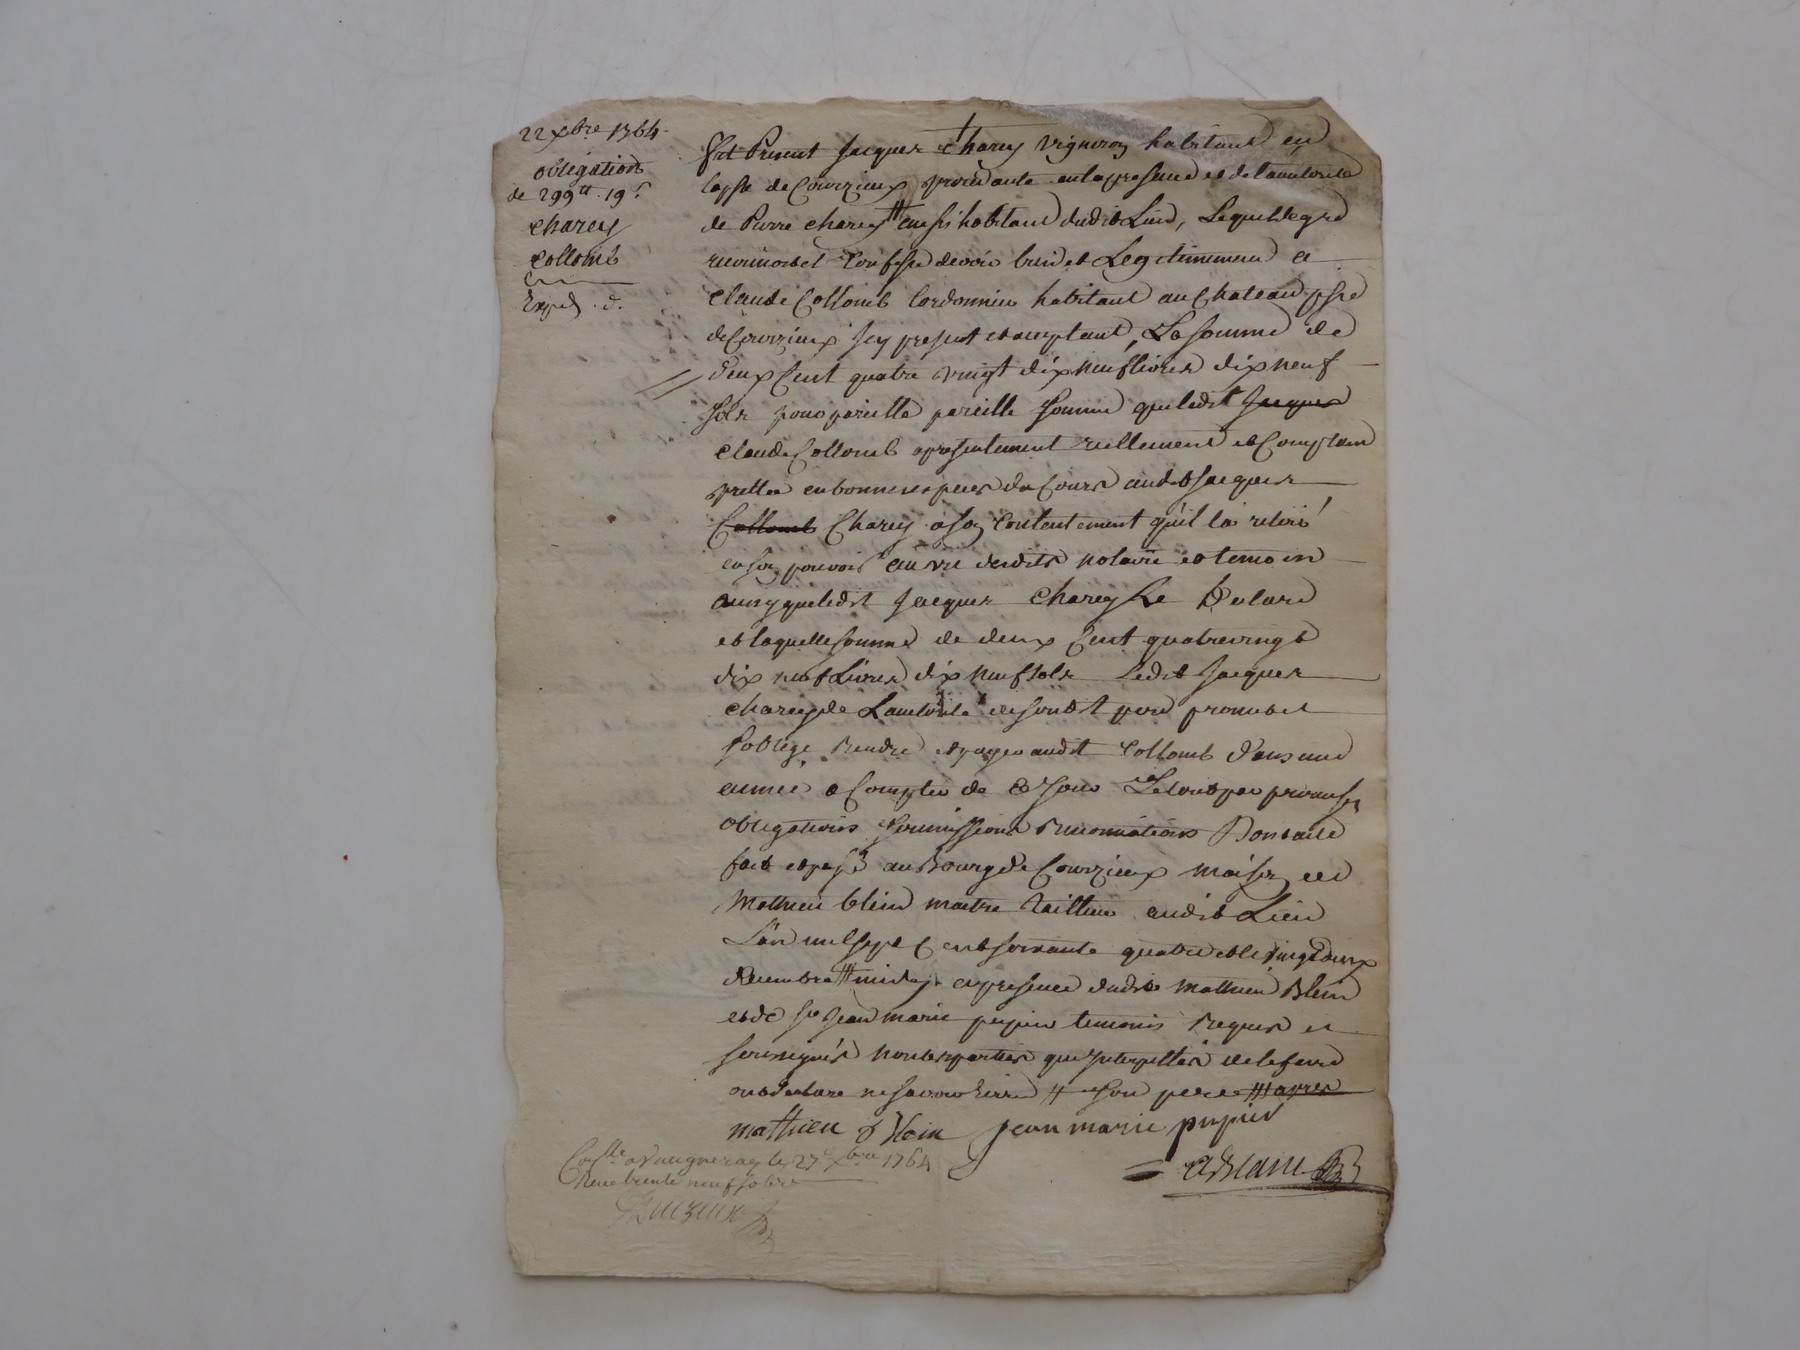 22 xbre 1764
obligation
de 299tt 19s
Charey
Collomb
Exped. d.
Fut Present Jacques Charey vigneron habitant en
laps̃se de Courzieux procedante en la presence et de l'autorité
de Pierre Charey aussi habitant dudit Lieu, Lequel de gré
reconnoit et Confesse devoir bien et Legitimement a
Claude Collomb Cordonnier habitant au Chateau psse
de Courzieux Icy present et acceptant, La somme de
deux Cent quatre vingt dix neuf livres dix neuf
sols pour pareille pareille somme que ledit Jacques
Claude Collomb a presentement reellement et Comptam
prettée en bonnes especes de Cours audit Jacques
Collomb Charey a son Contentement qu'il la retiré
en son pouvoir au vu desdits notaire et temoin
ainsy que ledit Jacques Charey Le Declare
et laquelle somme de deux Cent quatrevingt
dix neuf Livres dix neuf sols Ledit Jacques
Charey de Lautorité de sondit pere promet et
s'oblige Rendre et payer audit Collomb dans une
année a Compter de Ce Jour Le tout par promesses
obligations soumissions Renonciations Dont acte
fait et passé au Bourg de Courzieux maison de
Mathieu blein maitre tailleur audit Lieu
L'an mil sept Cent soixante quatre et le vingt deux
decembre midy en presence dudit Mathieu Blein
et de sr Jean marie pupier temoins Requis et
soussignés non les parties que Interpellés de le faire
ont declare ne savoir # et son pere # apres
mathieu blein jean marie pupier
Conlle a Vaugneray le 27 xbre 1764
Reçu trente neuf sols